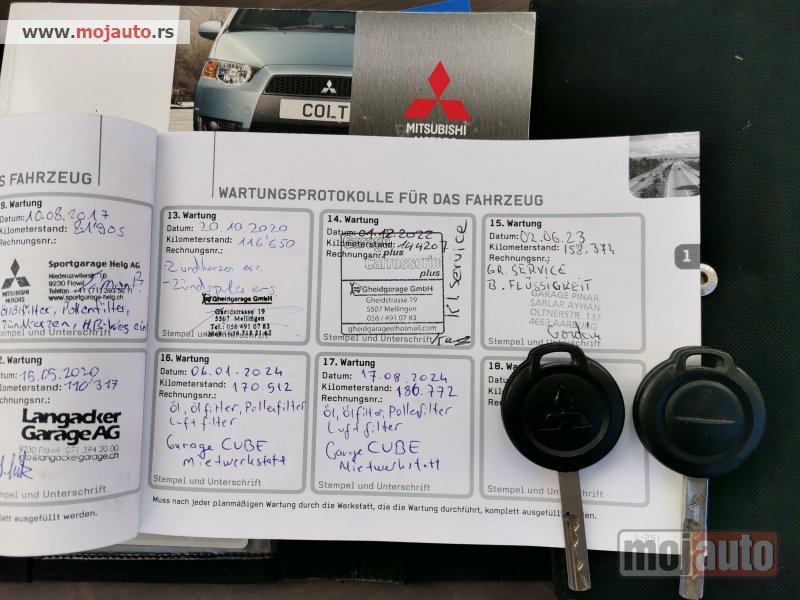 www.mojauto.rs
COLT
MITSUBISHI
MOTORS
S FAHRZEUG
9. Wartung
Datum: 10.08.2017
Kilometerstand: 81'905
Rechnungsnr.:
MITSUBISHI
MOTORS
Sportgarage Helg AG
9230 Flawil
www.sportgarage-helg.ch
Ölfilter, Pollenfilter,
Zündkerzen,
Stempel und Unterschrift
2. Wartung
Datum: 15.05.2020
Kilometerstand: 110'317
Rechnungsnr.:
Langacker
Garage AG
9230 Flawil 071 394 20 00
info@langackergarage.ch
Stempel und Unterschrift
plett ausgefüllt werden.
WARTUNGSPROTOKOLLE FÜR DAS FAHRZEUG
13. Wartung
Datum: 20.10.2020
Kilometerstand: 116'650
Rechnungsnr.:
- Zündkerzen ers.
- Zündspulen ers
Gheidgarage GmbH
Gheidstrasse 19
5507 Mellingen
Tel.: 056 491 07 83
Stempel und Unterschrift
14. Wartung
Datum: 01.12.2022
Kilometerstand: 144207
Rechnungsnr.:
plus
carrosserie
plus
Gheidgarage GmbH
Gheidstrasse 19
5507 Mellingen
056 / 491 07 83
gheidgarage@hotmail.com
Kl. Service
Stempel und Unterschrift
15. Wartung
Datum: 02.06.23
Kilometerstand: 158.374
Rechnungsnr.:
GR. SERVICE
B. FLÜSSIGKEIT
GARAGE PINAR
SARLAR AYHAN
OLTNERSTR. 137
4663 AARBURG
Stempel und Unterschrift
1
16. Wartung
Datum: 06.01-2024
Kilometerstand: 170.512
Rechnungsnr.:
Öl, Ölfilter, Pollenfilter
Luftfilter
Garage CUBE
Mietwerkstatt
Stempel und Unterschrift
17. Wartung
Datum: 17.08.2024
Kilometerstand: 180.772
Rechnungsnr.:
Öl, Ölfilter, Pollenfilter
Luftfilter
Garage CUBE
Mietwerkstatt
Stempel und Unterschrift
18.
Datum:
Kilometer
Rechnungs
Stempel und Unterschrift
Muss nach jeder planmäßigen Wartung durch die Werkstatt, die die Wartung durchführt, komplett ausgefüllt werden.
mojauto